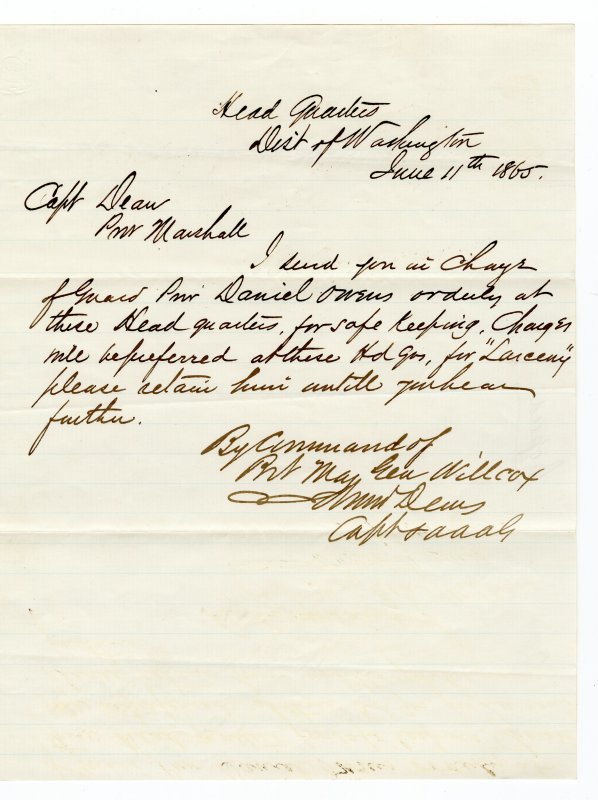 Head Quarters
Dist of Washington
June 11th 1865.
Capt Dean
Prov Marshall
I send you in charge
of Guard Priv Daniel Owens orderly at
these Head quarters, for safe keeping. Charges
will be preferred at these Hd Qrs, for "Larceny"
please retain him untill you hear
further.
By Command of
Bvt Maj Gen Willcox
Capt & AAAG